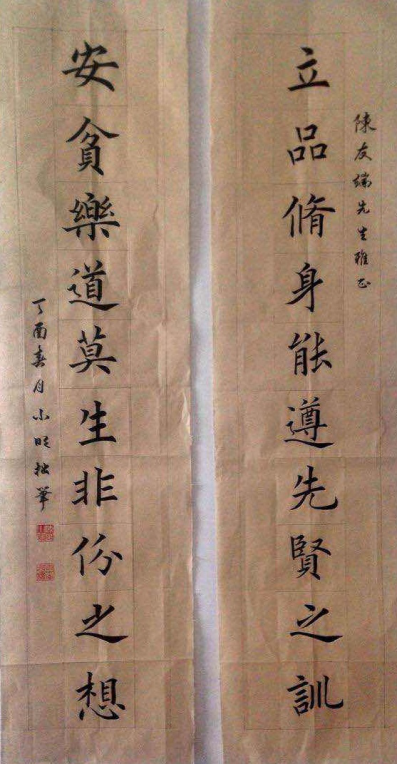 陳友端先生雅正
立品脩身能遵先賢之訓
安貧樂道莫生非份之想
丁酉春月小拙筆